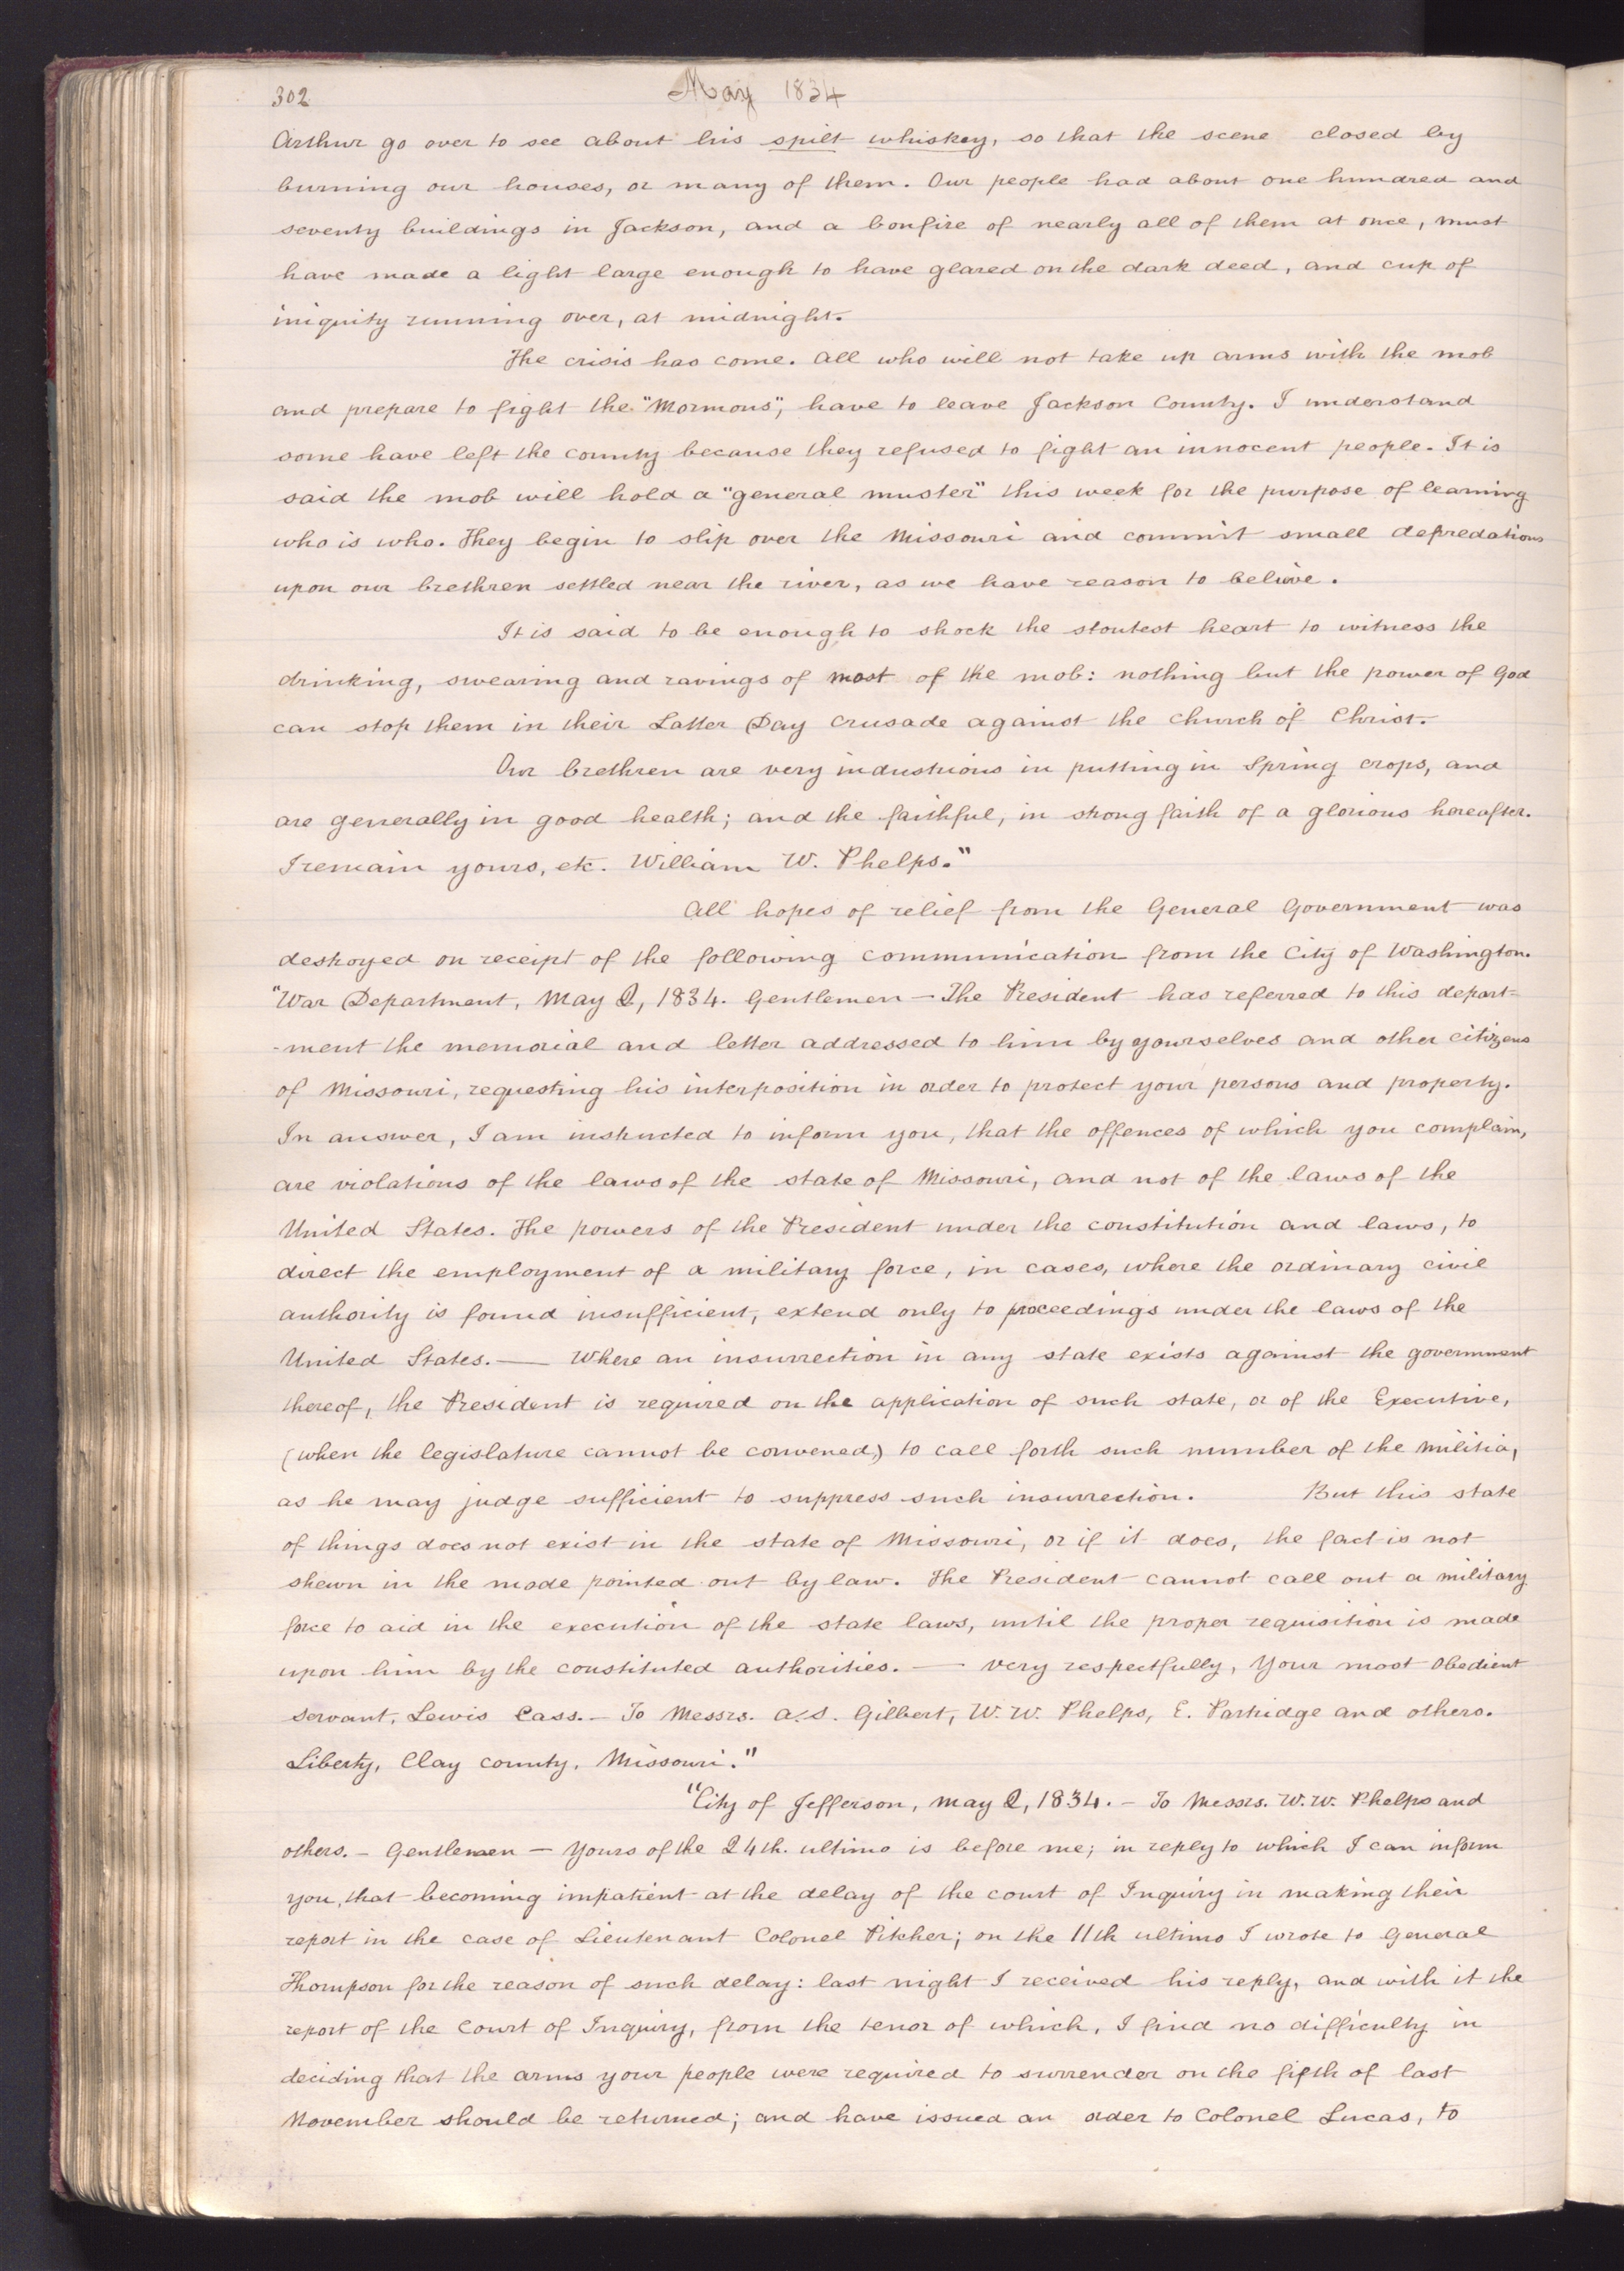 302
May 1834
Arthur go over to see about his spilt whiskey, so that the scene closed by
burning our houses, or many of them. Our people had about one hundred and
seventy buildings in Jackson, and a bonfire of nearly all of them at once, must
have made a light large enough to have glared on the dark deed, and cup of
iniquity running over, at midnight.
The crisis has come. All who will not take up arms with the mob
and prepare to fight the "Mormons", have to leave Jackson County. I understand
some have left the county because they refused to fight an innocent people. It is
said the mob will hold a "general muster" this week for the purpose of learning
who is who. They begin to slip over the Missouri and commit small depredations
upon our brethren settled near the river, as we have reason to believe.
It is said to be enough to shock the stoutest heart to witness the
drinking, swearing and ravings of most of the mob: nothing but the power of God
can stop them in their Latter Day crusade against the church of Christ.
Our brethren are very industrious in putting in Spring crops, and
are generally in good health; and the faithful, in strong faith of a glorious hereafter.
I remain yours, etc. William W. Phelps."
All hopes of relief from the General Government was
destroyed on receipt of the following communication from the City of Washington.
"War Department, May 2, 1834. Gentlemen — The President has referred to this depart-
-ment the memorial and letter addressed to him by yourselves and other citizens
of Missouri, requesting his interposition in order to protect your persons and property.
In answer, I am instructed to inform you, that the offences of which you complain,
are violations of the laws of the state of Missouri, and not of the laws of the
United States. The powers of the President under the constitution and laws, to
direct the employment of a military force, in cases, where the ordinary civil
authority is found insufficient, extend only to proceedings under the laws of the
United States. — Where an insurrection in any state exists against the government
thereof, the President is required on the application of such state, or of the Executive,
(when the legislature cannot be convened,) to call forth such number of the militia,
as he may judge sufficient to suppress such insurrection. But this state
of things does not exist in the state of Missouri, or if it does, the fact is not
shewn in the mode pointed out by law. The President cannot call out a military
force to aid in the execution of the state laws, until the proper requisition is made
upon him by the constituted authorities. — very respectfully, Your most obedient
servant, Lewis Cass. — To Messrs. A. S. Gilbert, W. W. Phelps, E. Partridge and others.
Liberty, Clay county, Missouri."
"City of Jefferson, may 2, 1834. — To Messrs. W. W. Phelps and
others. — Gentlemen — Yours of the 24th. ultimo is before me; in reply to which I can inform
you, that becoming impatient at the delay of the court of Inquiry in making their
report in the case of Lieutenant Colonel Pitcher; on the 11th ultimo I wrote to General
Thompson for the reason of such delay: last night I received his reply, and with it the
report of the Court of Inquiry, from the tenor of which, I find no difficulty in
deciding that the arms your people were required to surrender on the fifth of last
November should be returned; and have issued an order to Colonel Lucas, to